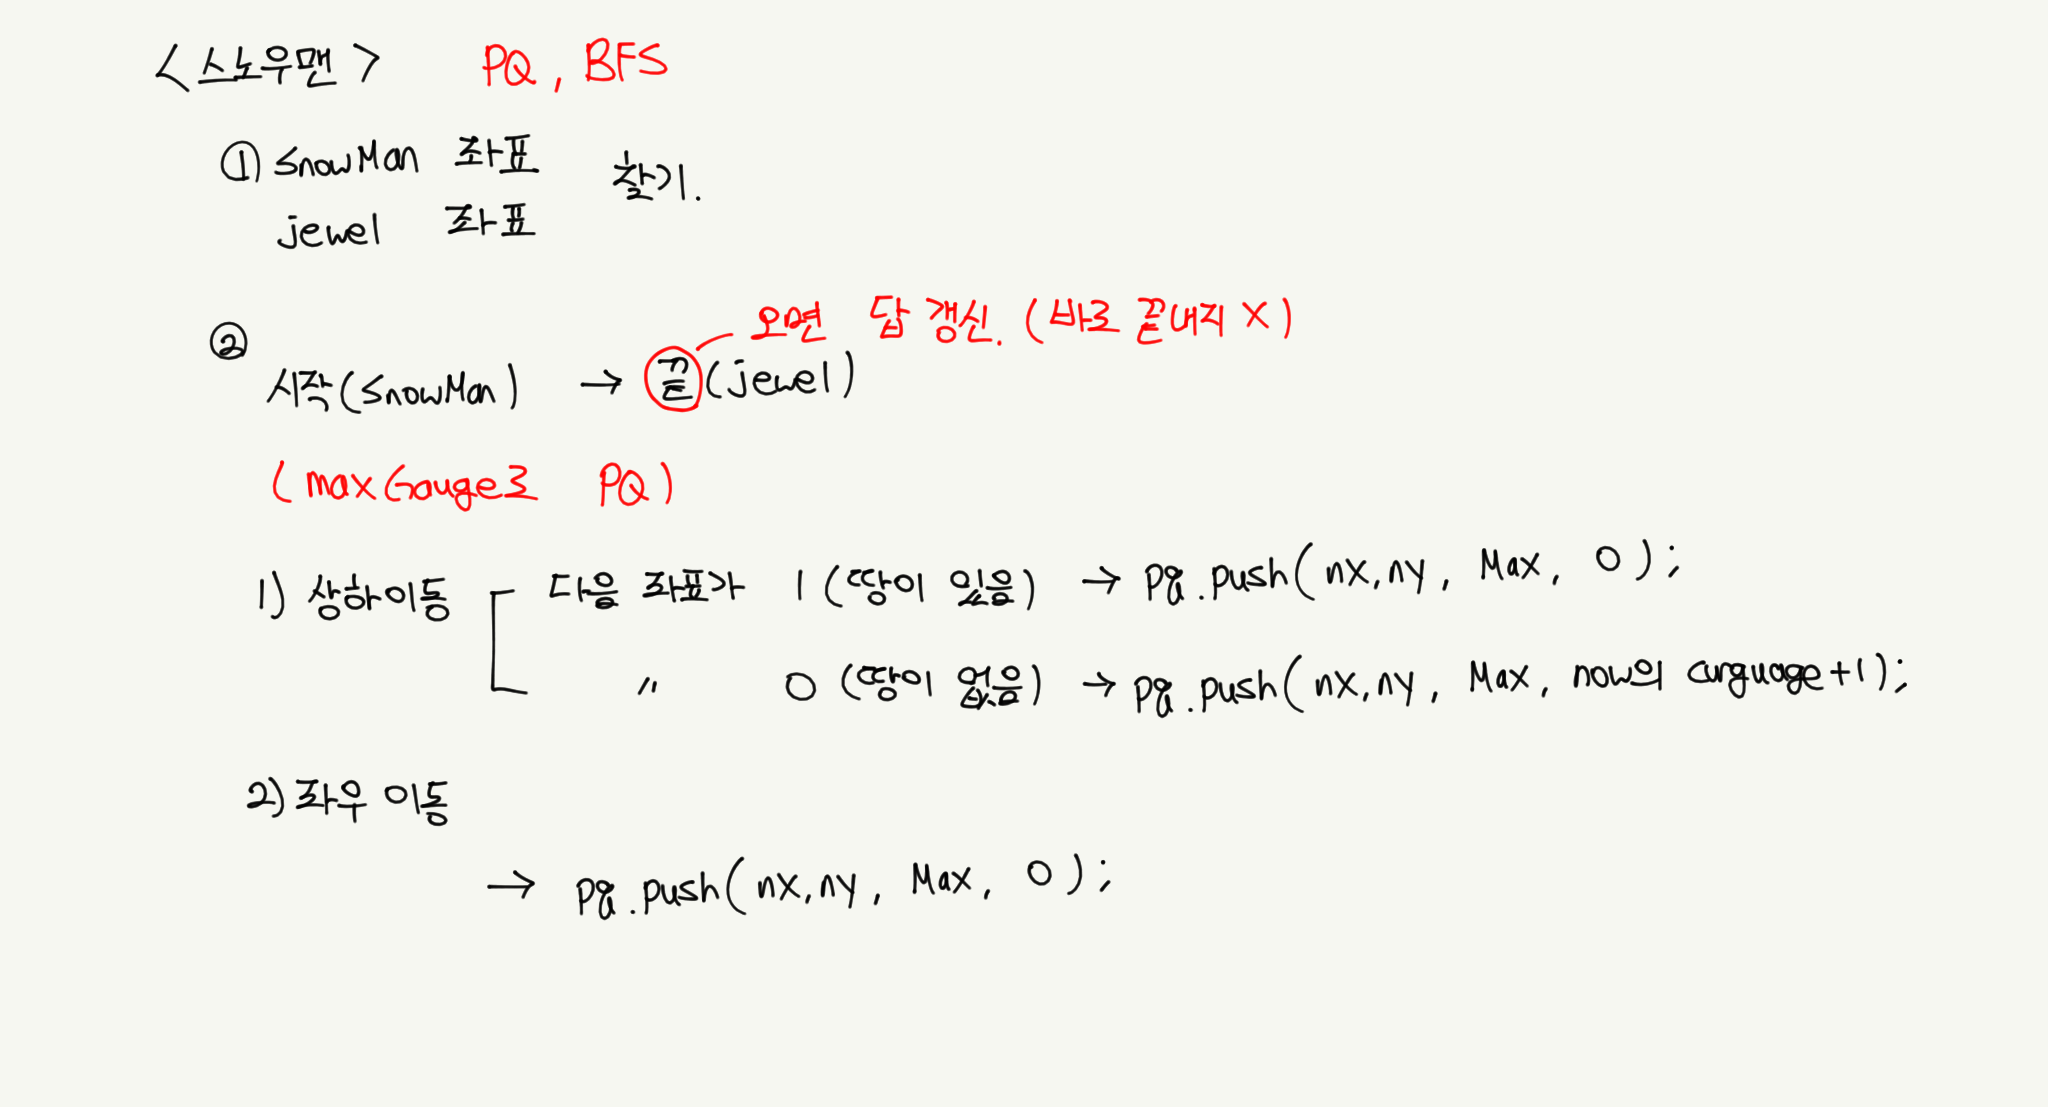 <스노우맨> PQ, BFS
① SnowMan 좌표 찾기.
jewel 좌표
오면 답 갱신. (바로 끝내지 X)
②
시작(SnowMan) → 끝(jewel)
(maxGauge로 PQ)
1) 상하이동 다음 좌표가 1 (땅이 있음) → pq.push(nx,ny, Max, 0);
〃 0 (땅이 없음) → pq.push(nx,ny, Max, now의 curguage+1);
2) 좌우 이동
→ pq.push(nx,ny, Max, 0);